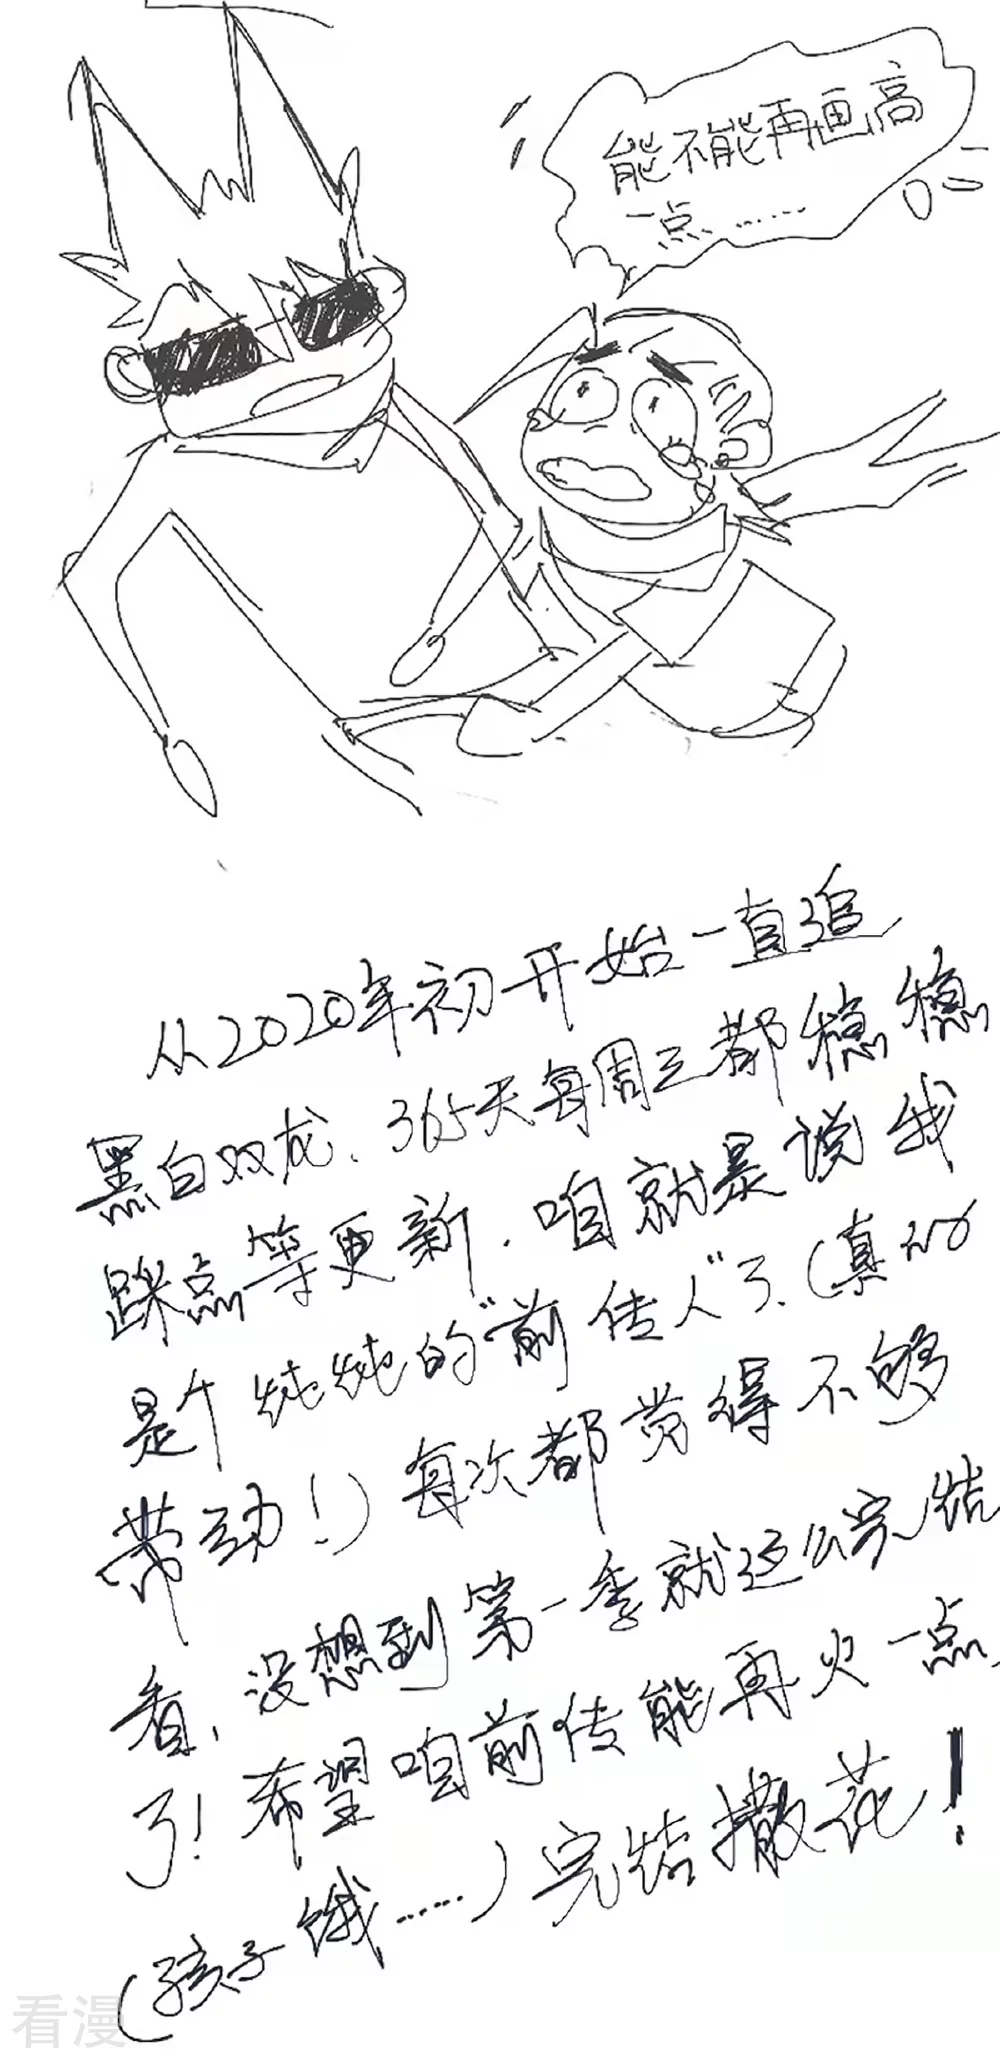 能不能再画高
一点……
从2020年初开始一直追
黑白双龙、365天每周三都稳稳
踩点等更新.咱就是说我
是个纯纯的"前传人"了.(真的
带动!)每次都觉得不够
看,没想到第一季就这么完结
了!希望咱前传能再火一点
(孩子饿……)完结撒花!
看漫